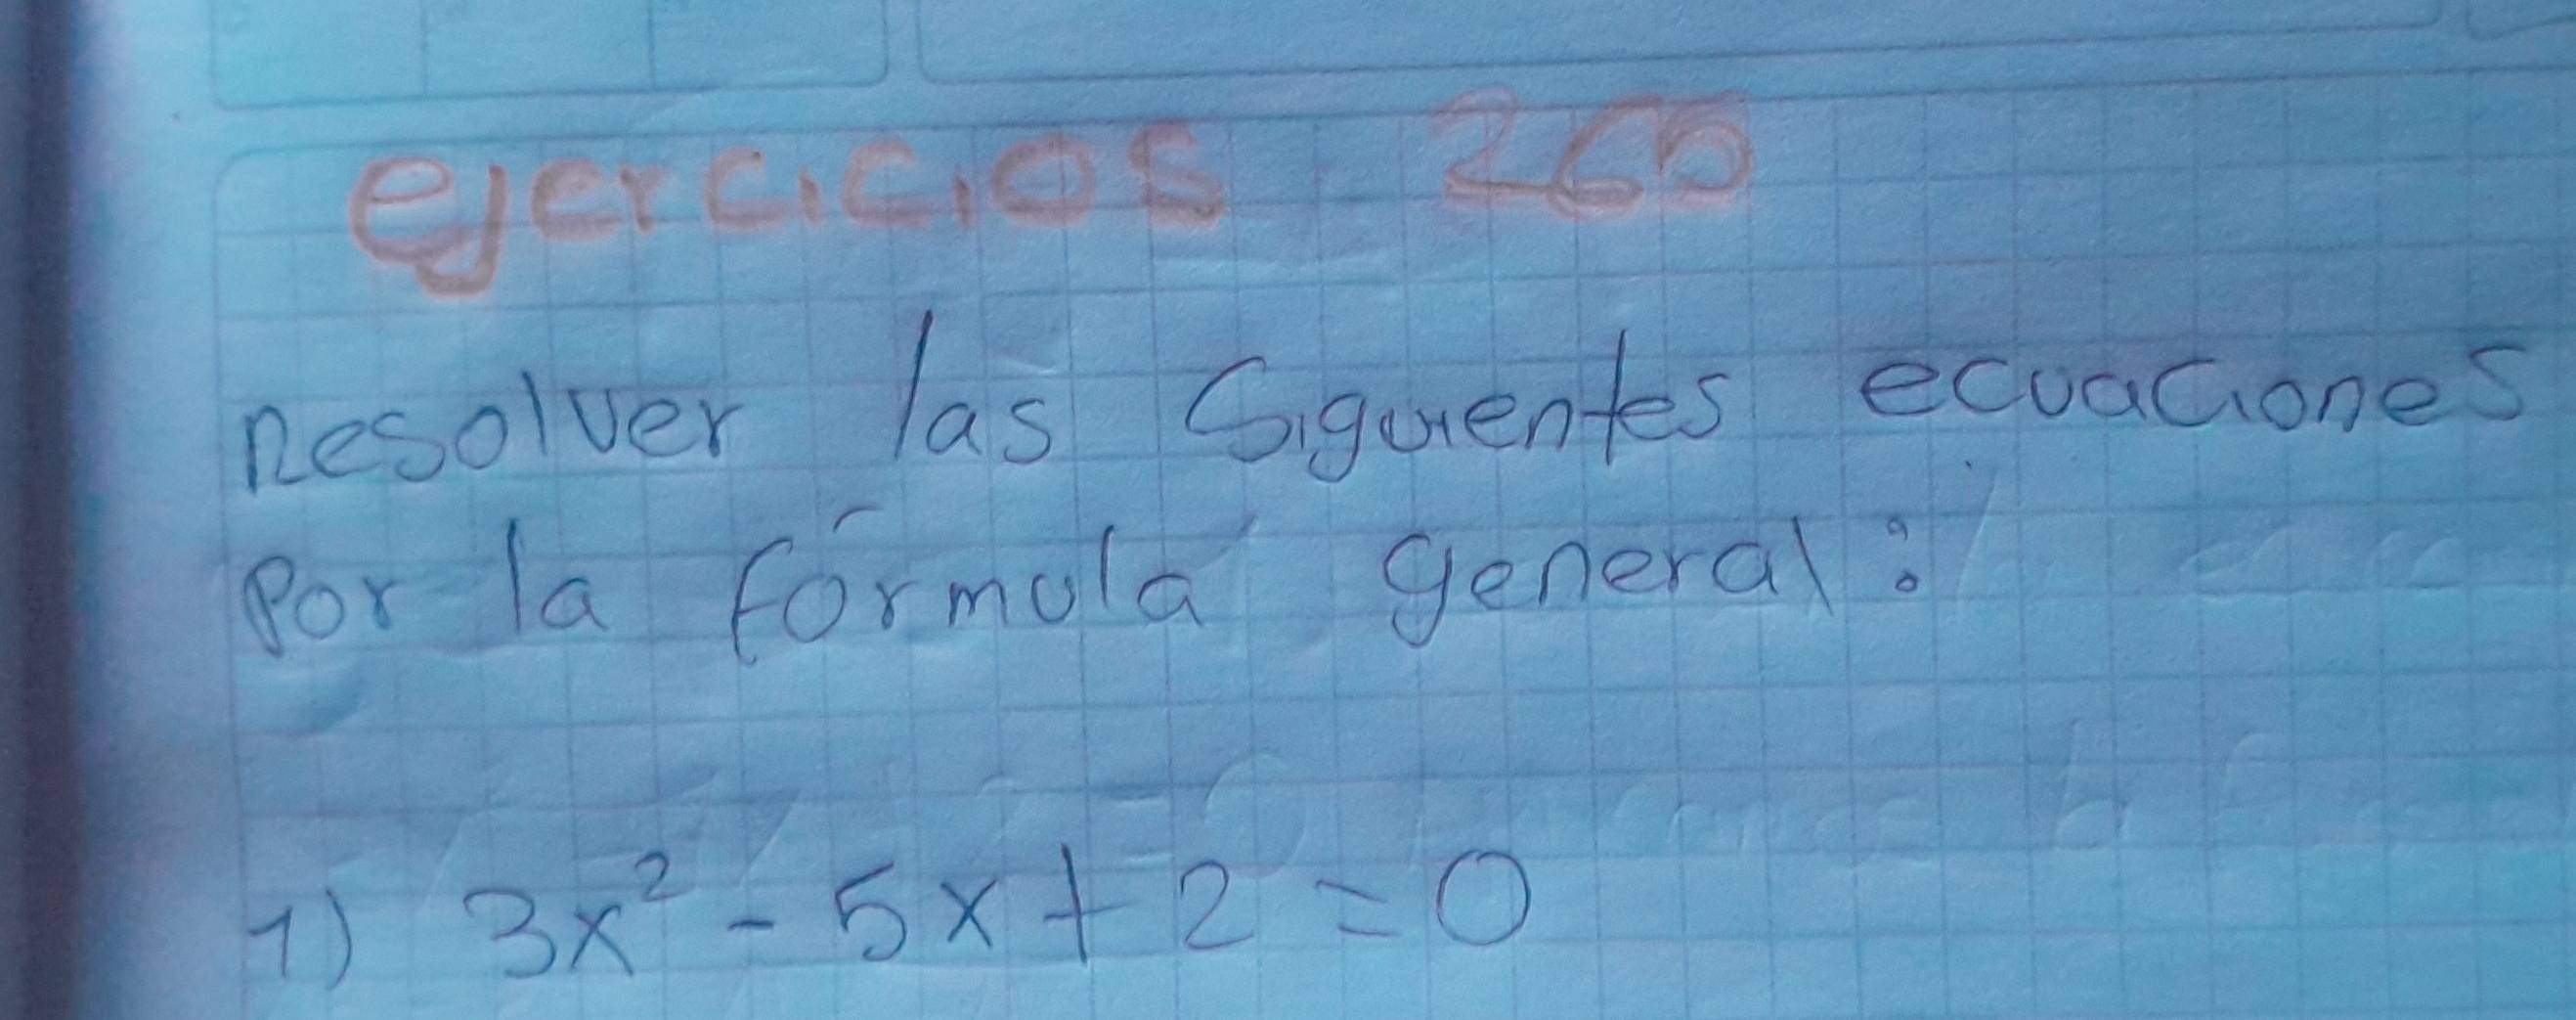 ejercicios 265
Resolver las Siguientes ecuaciones
Por la fórmula general:
1) 3x² - 5x + 2 = 0